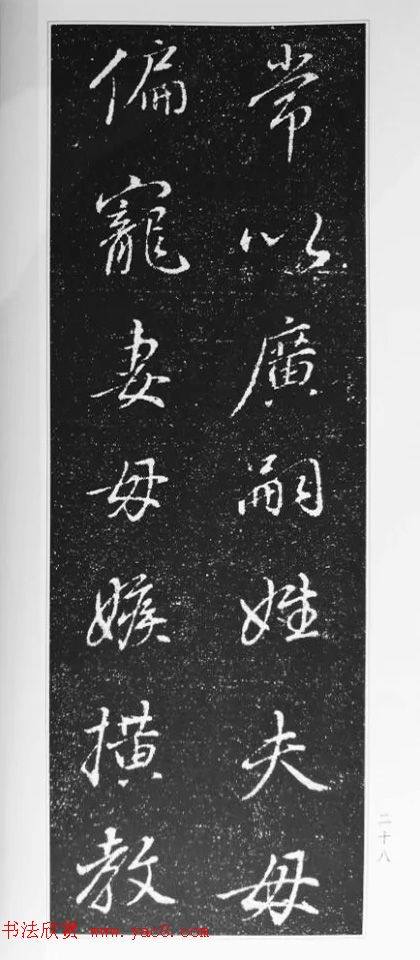 常以廣嗣姓夫毋
偏寵妻毋嫉横教
二十八
书法欣赏 www.yac8.com